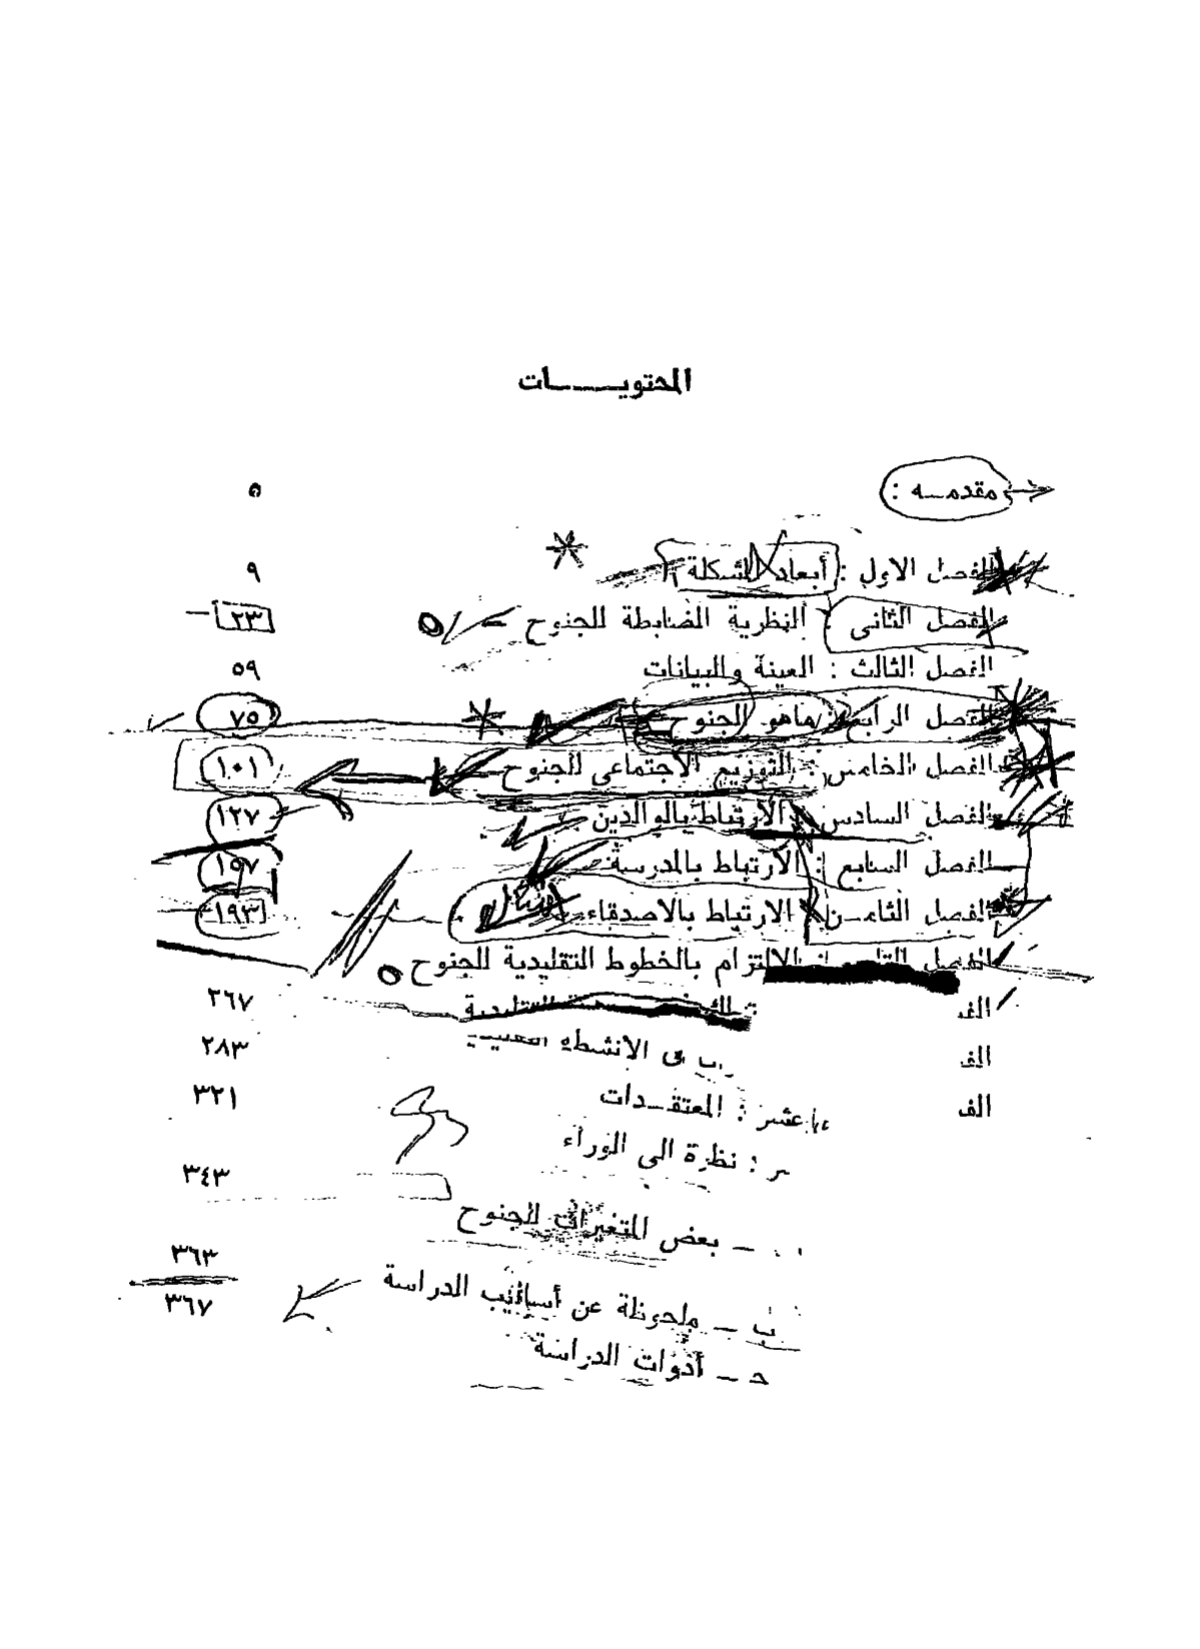 المحتويــــات
مقدمـه : ٥
الفصل الاول : أبعاد المشكلة ٩
الفصل الثانى : النظرية الضابطة للجنوح ٢٣
الفصل الثالث : العينة والبيانات ٥٩
الفصل الرابع : ماهو الجنوح ٧٥
الفصل الخامس : التوزيع الاجتماعى للجنوح ١٠١
الفصل السادس : الارتباط بالوالدين ١٢٧
الفصل السابع : الارتباط بالمدرسة ١٥٧
الفصل الثامـن : الارتباط بالاصدقاء ١٩٣
الفصل : الالتزام بالخطوط التقليدية للجنوح
الف التقليدية ٢٦٧
الف فى الانشطة ٢٨٣
الف عشر : المعتقـدات ٣٢١
ر : نظرة الى الوراء
٣٤٣
ـ بعض المتغيرات للجنوح
٣٦٣
ب ـ ملحوظة عن أساليب الدراسة ٣٦٧
حـ ـ أدوات الدراسة